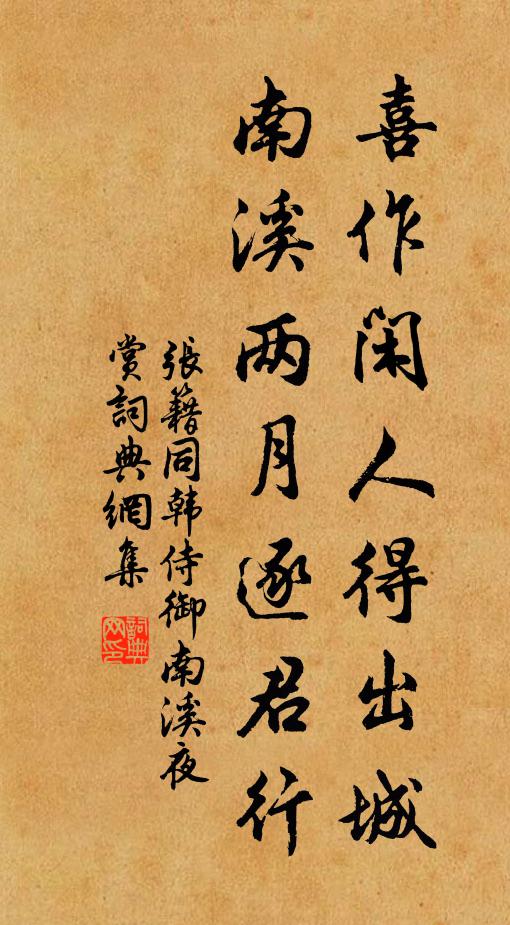 喜作闲人得出城
南溪两月逐君行
張籍同韩侍御南溪夜
赏詞典網集
詞典
网印